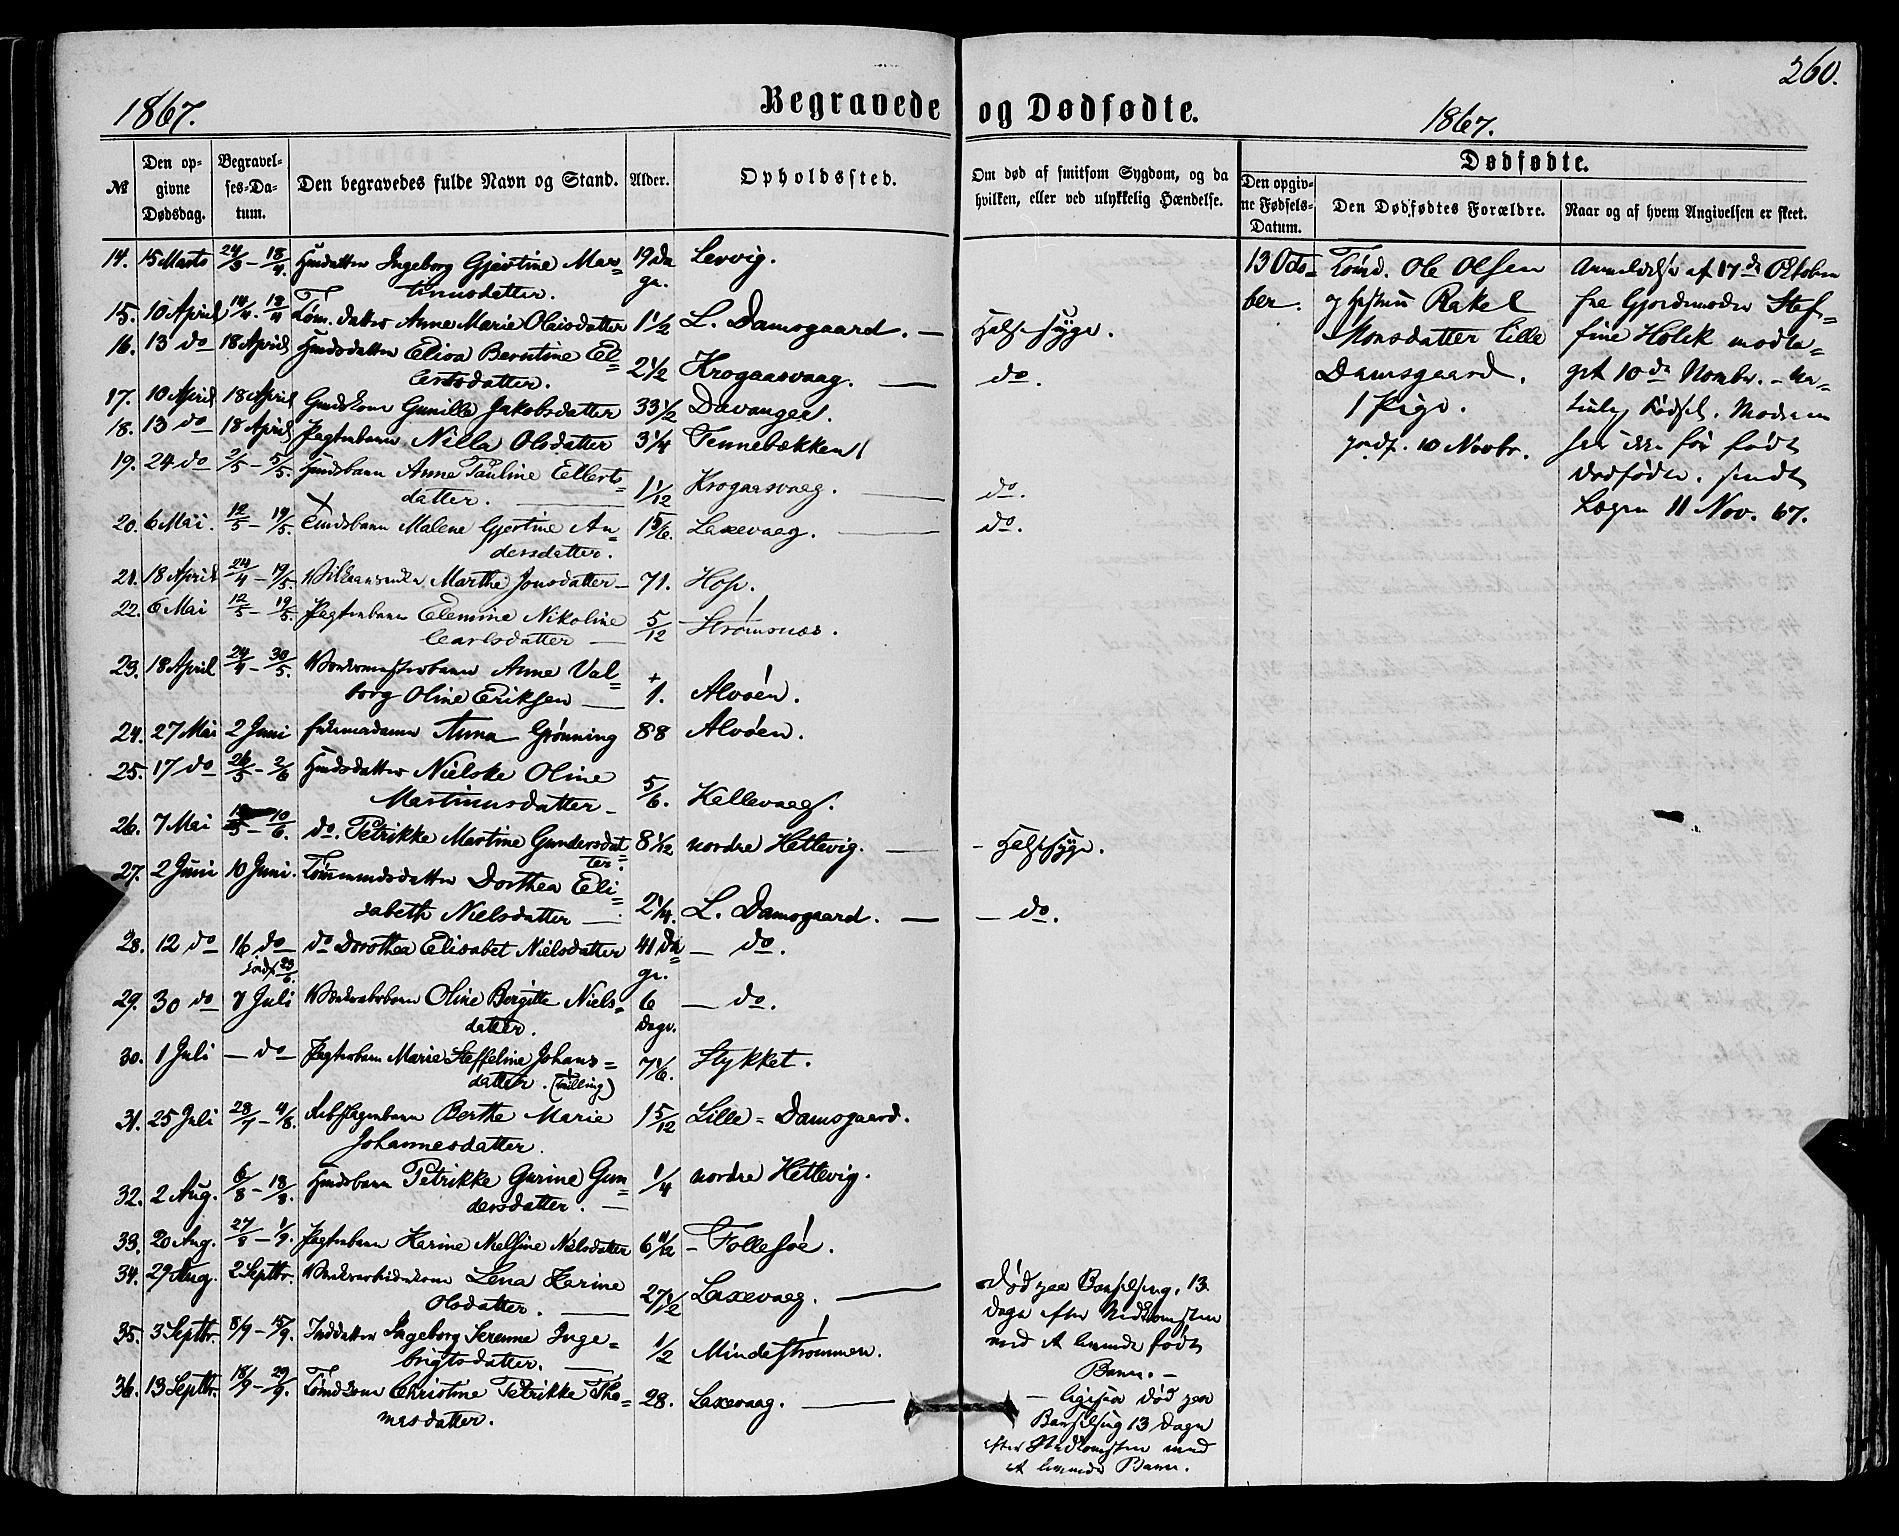 260.
1867. Begravede og Dødfødte. 1867.
№
Den opgivne Dødsdag.
Begravelses-Datum.
Den begravedes fulde Navn og Stand.
Alder.
Opholdssted.
Om død af smitsom Sygdom, og da hvilken, eller ved ulykkelig Hændelse.
Dødfødte.
Den opgivne Fødsels-Datum.
Den Dødfødtes Forældre.
Naar og af hvem Angivelsen er skeet.
14. 15 Marts 24/3 - 18/4. Ingeborg Gjertine Mar= 19 Da Levvig.
tinusdatter. ge.
15. 10 April 14/4. 18/4 Tøm. datter Anne Marie Olaisdatter 1 1/2 L. Damsgaard. — Halssyge.
16. 13 do 18 April Elisa Berntine El=
lertsdatter. 2 1/2 Krogaasvaag. — do.
17. 10 April 18 April Gunille Jakobsdatter 33 1/2 Davanger.
18. 13 do 18 April Nilla Olsdatter 3 1/4 Tennebækken
19. 24 do 2/5 - 5/5. Anne Pauline Ellerts=
datter. 1 1/12 Krogaasvaag. — do.
20. 6 Mai. 12/5 - 19/5. Malene Gjertine An= 1 5/6. Laxevaag. — do.
dersdatter.
21. 18 April 24/4 - 19/5. Marthe Jonsdatter - 71. Hop.
22. 6 Mai 12/5 - 19/5. Elemine Nikoline
Carlsdatter — 5/12 Strømsnæs.
23. 18 April 24/4 - 30/5. Anne Val=
borg Oline Eriksen — 1. Alvøen.
24. 27 Mai 2 Juni Anna Grønning 88 Alvøen.
25. 17 do 26/5 - 2/6 Nielske Oline
Martinusdatter - 5/6. Kellevaag.
26. 7 Mai - 10/6. do. Petrikke Martine Gundersdat= 8 1/12 nordre Hettevig. — Halssyge.
ter.
27. 2 Juni 10 Juni. Dorthea Eli=
sabeth Nielsdatter — 2 1/4. L. Damsgaard. — — do.
28. 12 do 16 do do Dorothea Elisabet Nielsdatter 41 Da= — do.
jordf 23/6. ge.
29. 30 do 7 Juli Oline Bergitte Niels= 6 — do.
datter. Dage.
30. 1 Juli — do Marie Steffeline Johans=
datter. (Tvilling) 7 1/6. Stykket.
31. 25 Juli 28/7 - 4/8. Berthe Marie 1 5/12 Lille = Damsgaard.
Johannesdatter.
32. 2 Aug. 6/8 - 18/8. Petrikke Gurine Gun= 1/4 nordre Hettevig.
dersdatter. —
33. 20 Aug. 27/8 - 1/9. Karine Nielsdatter 6 11/12 - Follesøe.
34. 29 Aug. 2 Septbr. Lena Karine
Olsdatter. — 27 1/2 Laxevaag. — Død paa Barselseng, 13
Dage efter Nedkomsten
med et levende født
Barn. —
35. 3 Septbr. 8/9 - 15/9. Ingeborg Serenne Inge=
brigtsdatter. — 1/2 Mindestrømmen.
36. 13 Septbr. 18/9 - 29/9. Christine Petrikke Tho= 28. Laxevaag. — — ligesaa død paa
masdatter. Barselseng 13 Dage
efter Nedkomsten med
et levende Barn.
13 Octo=
ber.
Tømd. Ole Olsen
og Hustru Rakel
Monsdatter Lille
Damsgaard.
1 Pige.
jordf. 10 Novbr.
Anmeldelse af 17de Oktober
fra Gjordemoder Stef=
fine Holck modta=
get 10de Novbr. - Na=
turlig Fødsel. Moderen
har ikke før født
Dødfødte. sendt
Lægen 11 Nov. 67.